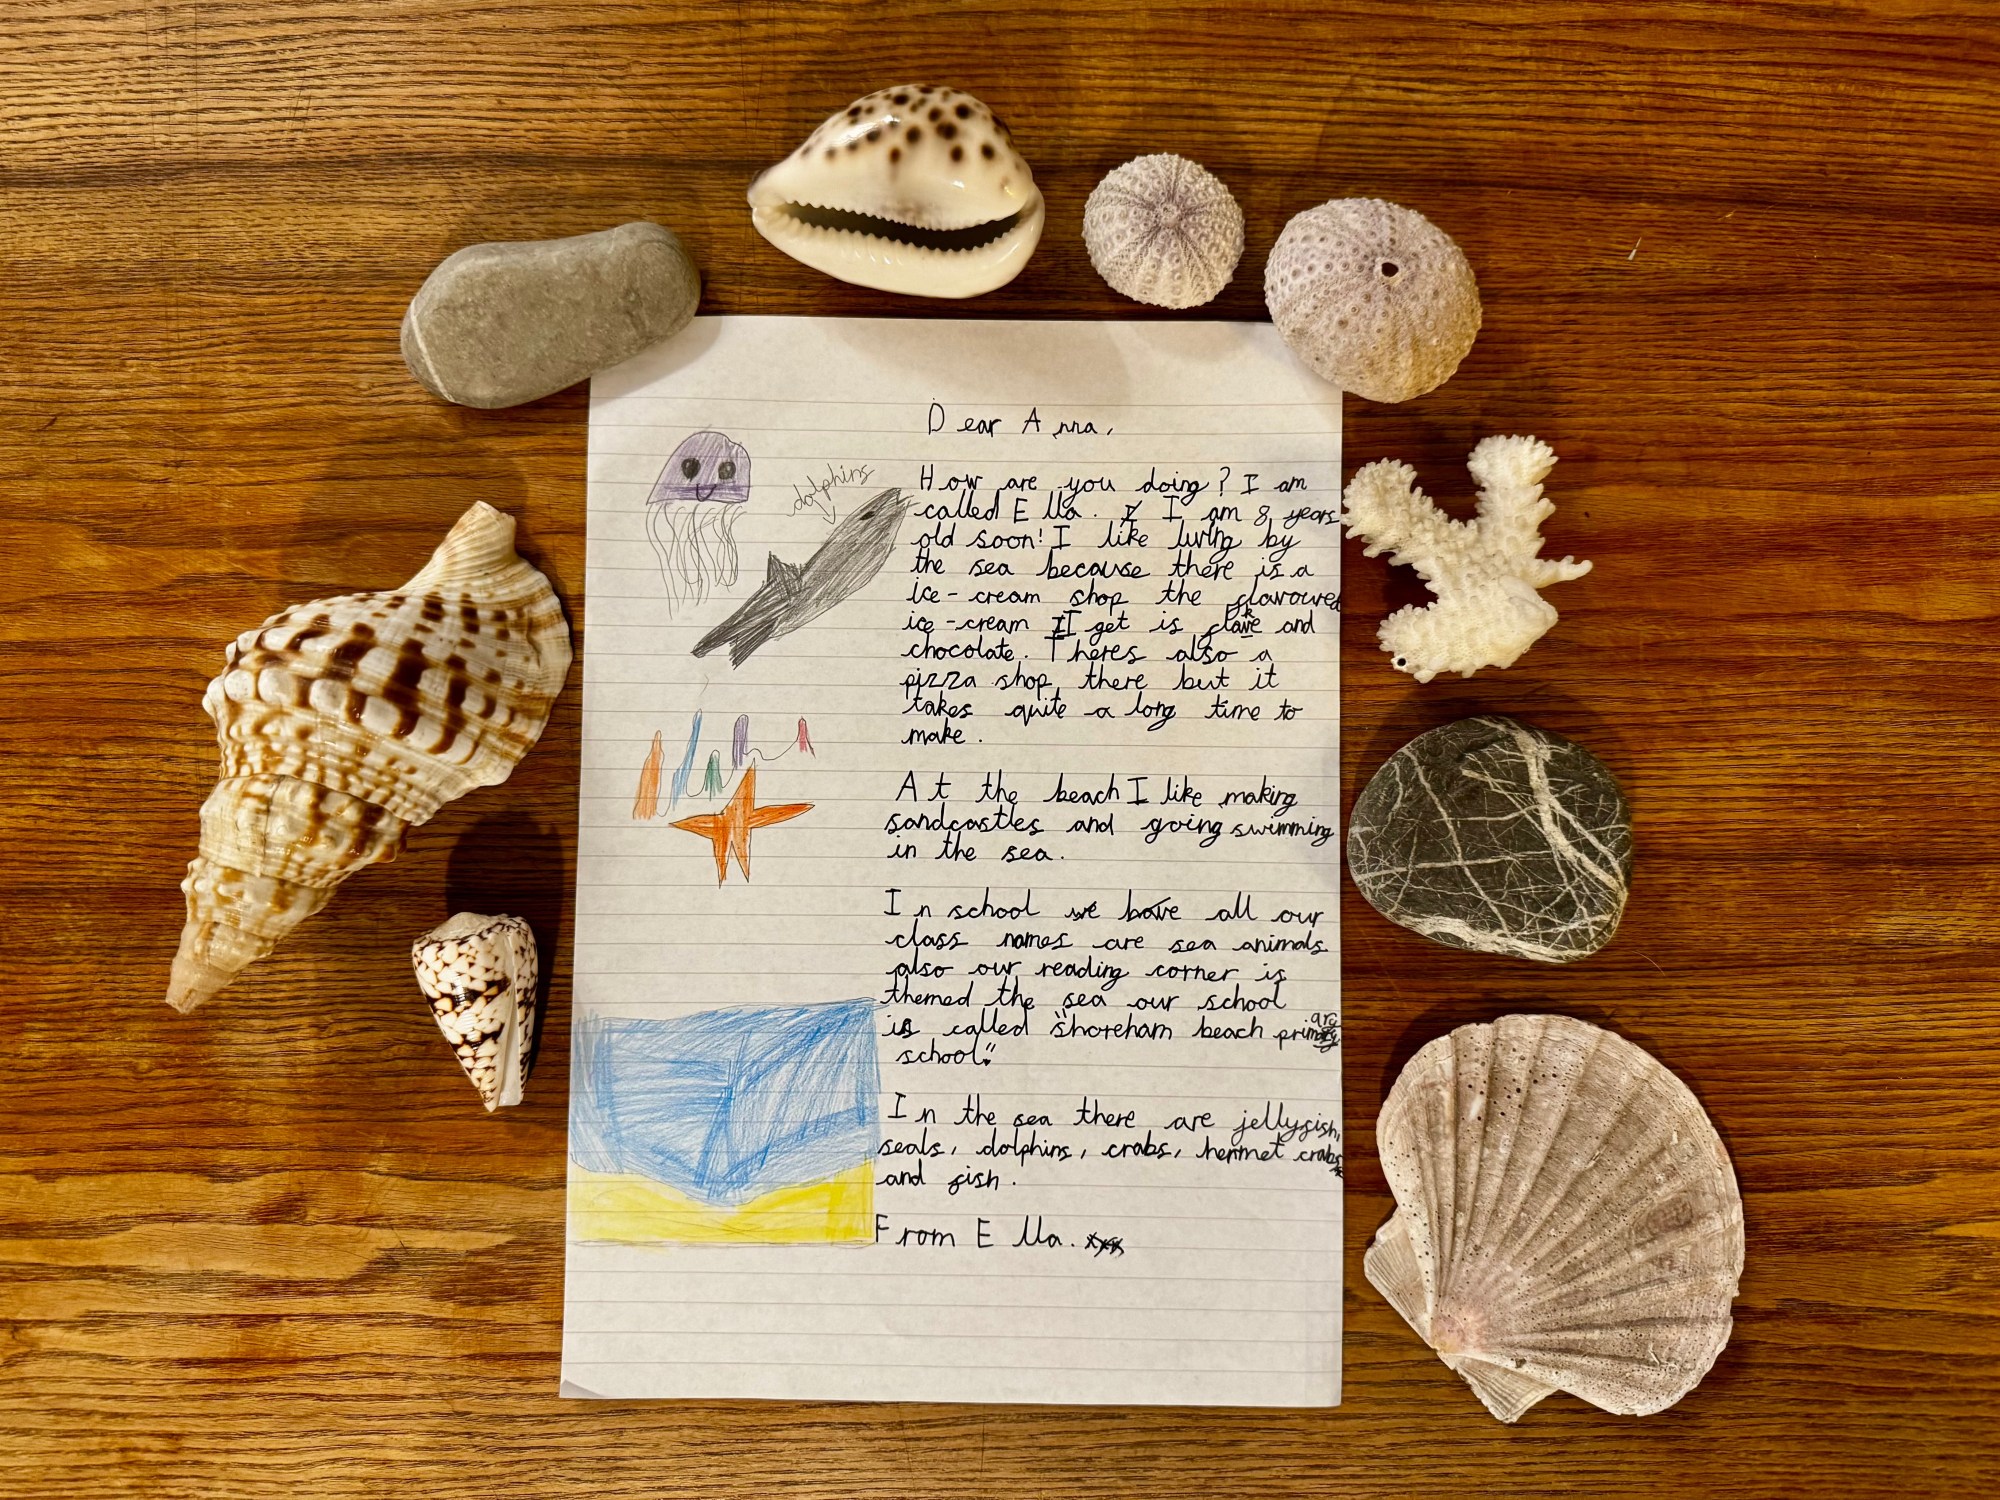 Dear Anna,
dolphins
How are you doing? I am
called Ella. I I am 8 years
old soon! I like living by
the sea because there is a
ice-cream shop the flavoured
ice-cream I get is flake and
chocolate. Theres also a
pizza shop there but it
takes quite a long time to
make.
At the beach I like making
sandcastles and going swimming
in the sea.
In school we have all our
class names are sea animals
also our reading corner is
themed the sea our school
is called "Shoreham beach primary
school".
In the sea there are jellyfish,
seals, dolphins, crabs, hermet crabs
and fish.
From Ella. xxx